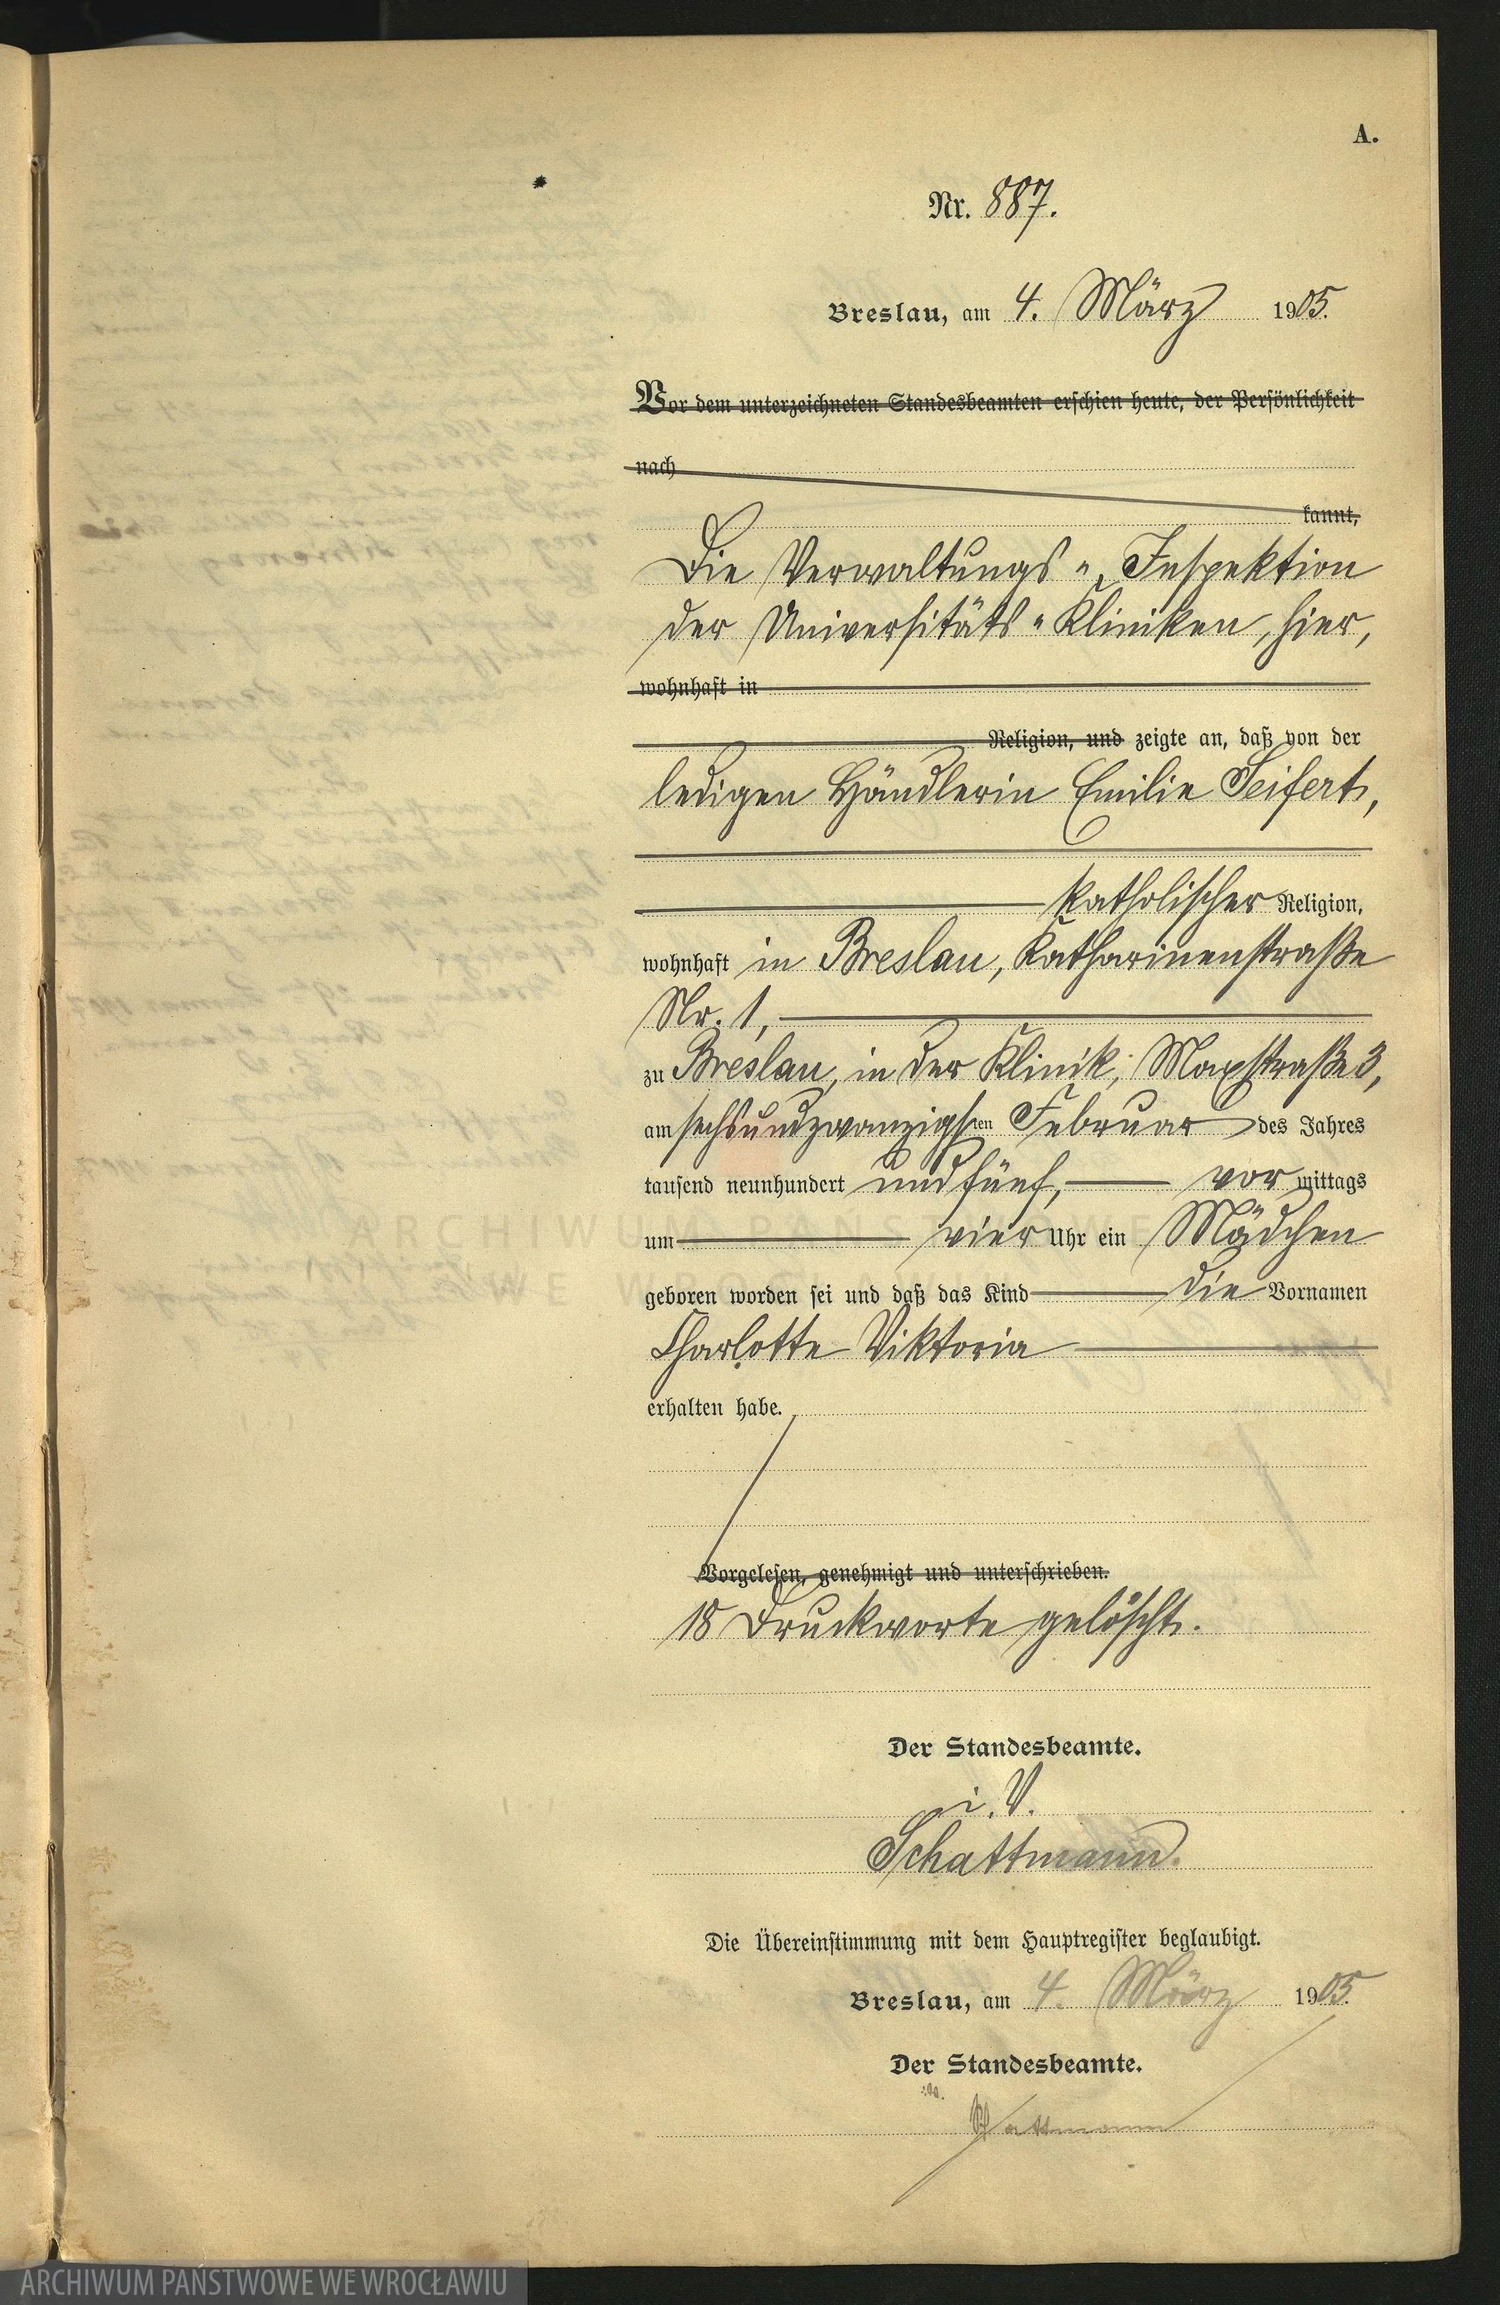 A.
Nr. 887.
Breslau, am 4. März 1905.
Vor dem unterzeichneten Standesbeamten erschien heute, der Persönlichkeit
nach
kannt,
Die Verwaltungs-Inspektion
der Universitäts-Kliniken, hier,
wohnhaft in
Religion, und zeigte an, daß von der
ledigen Händlerin Emilie Seifert,
katholischer Religion,
wohnhaft in Breslau, Katharinenstraße
Nr. 1,
zu Breslau, in der Klinik, Maxstraße 3,
am sechsundzwanzigsten Februar des Jahres
tausend neunhundert und fünf, vor mittags
um vier Uhr ein Mädchen
geboren worden sei und daß das Kind die Vornamen
Charlotte Viktoria
erhalten habe.
Vorgelesen, genehmigt und unterschrieben.
18 Druckworte gelöscht.
Der Standesbeamte.
i. V.
Schattmann.
Die Übereinstimmung mit dem Hauptregister beglaubigt.
Breslau, am 4. März 1905.
Der Standesbeamte.
Schattmann
ARCHIWUM PAŃSTWOWE WE WROCŁAWIU